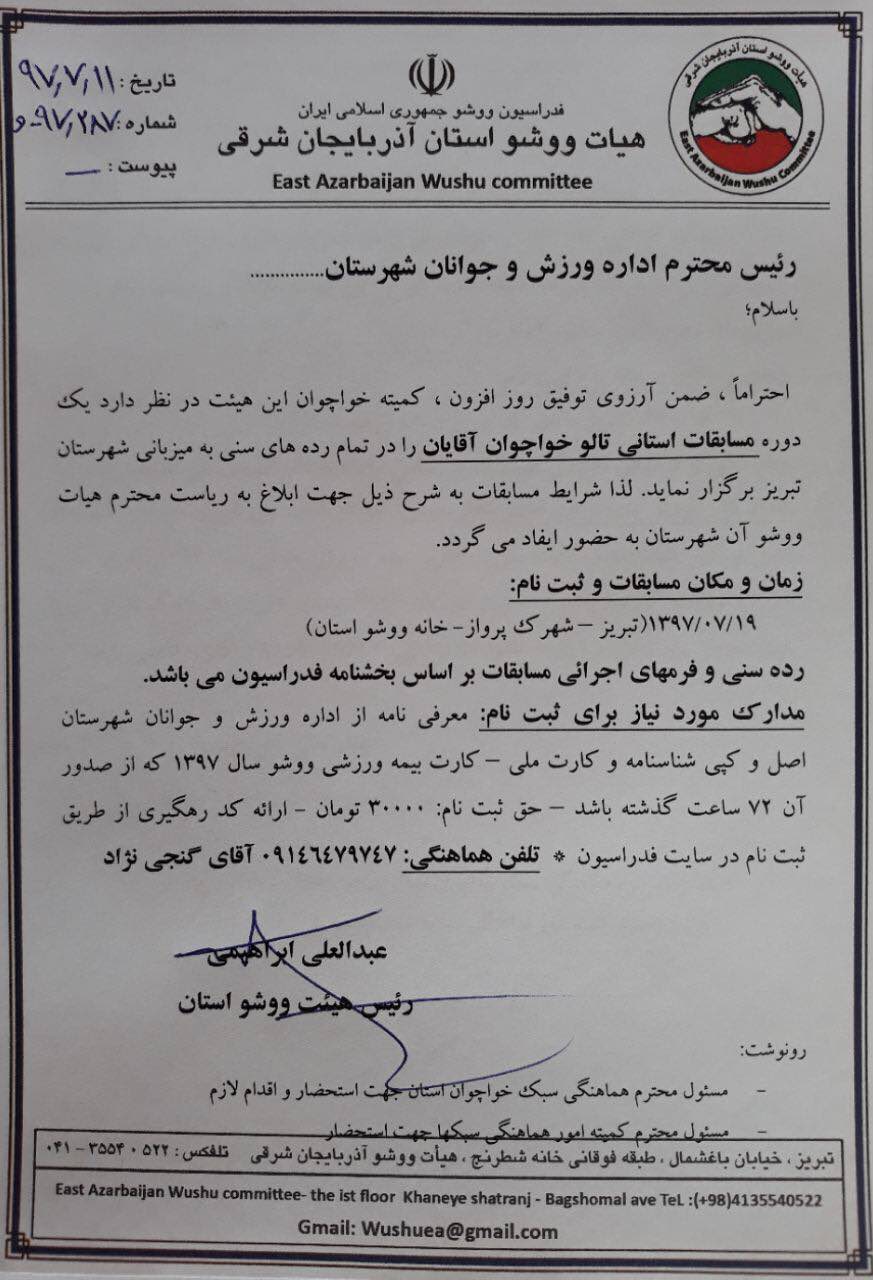 تاریخ : ۹۷٫۷٫۱۱
شماره : ۹۷٫۲۸۷-و
پیوست : —
فدراسیون ووشو جمهوری اسلامی ایران
هیات ووشو استان آذربایجان شرقی
East Azarbaijan Wushu committee
هیات ووشو استان آذربایجان شرقی
East Azarbaijan Wushu Committee
رئیس محترم اداره ورزش و جوانان شهرستان...............
باسلام؛
احتراماً ، ضمن آرزوی توفیق روز افزون ، کمیته خواچوان این هیئت در نظر دارد یک
دوره مسابقات استانی تالو خواچوان آقایان را در تمام رده های سنی به میزبانی شهرستان
تبریز برگزار نماید. لذا شرایط مسابقات به شرح ذیل جهت ابلاغ به ریاست محترم هیات
ووشو آن شهرستان به حضور ایفاد می گردد.
زمان و مکان مسابقات و ثبت نام:
۱۳۹۷/۰۷/۱۹(تبریز – شهرک پرواز- خانه ووشو استان)
رده سنی و فرمهای اجرائی مسابقات بر اساس بخشنامه فدراسیون می باشد.
مدارک مورد نیاز برای ثبت نام: معرفی نامه از اداره ورزش و جوانان شهرستان
اصل و کپی شناسنامه و کارت ملی – کارت بیمه ورزشی ووشو سال ۱۳۹۷ که از صدور
آن ۷۲ ساعت گذشته باشد – حق ثبت نام: ۳۰۰۰۰ تومان - ارائه کد رهگیری از طریق
ثبت نام در سایت فدراسیون * تلفن هماهنگی: ۰۹۱۴۶۴۷۹۷۴۷ آقای گنجی نژاد
عبدالعلی ابراهیمی
رئیس هیئت ووشو استان
رونوشت:
- مسئول محترم هماهنگی سبک خواچوان استان جهت استحضار و اقدام لازم
- مسئول محترم کمیته امور هماهنگی سبکها جهت استحضار
تبریز ، خیابان باغشمال ، طبقه فوقانی خانه شطرنج ، هیأت ووشو آذربایجان شرقی تلفکس : ۳۵۵۴۰۵۲۲ - ۰۴۱
East Azarbaijan Wushu committee- the ist floor Khaneye shatranj - Bagshomal ave TeL :(+98)4135540522
Gmail: Wushuea@gmail.com